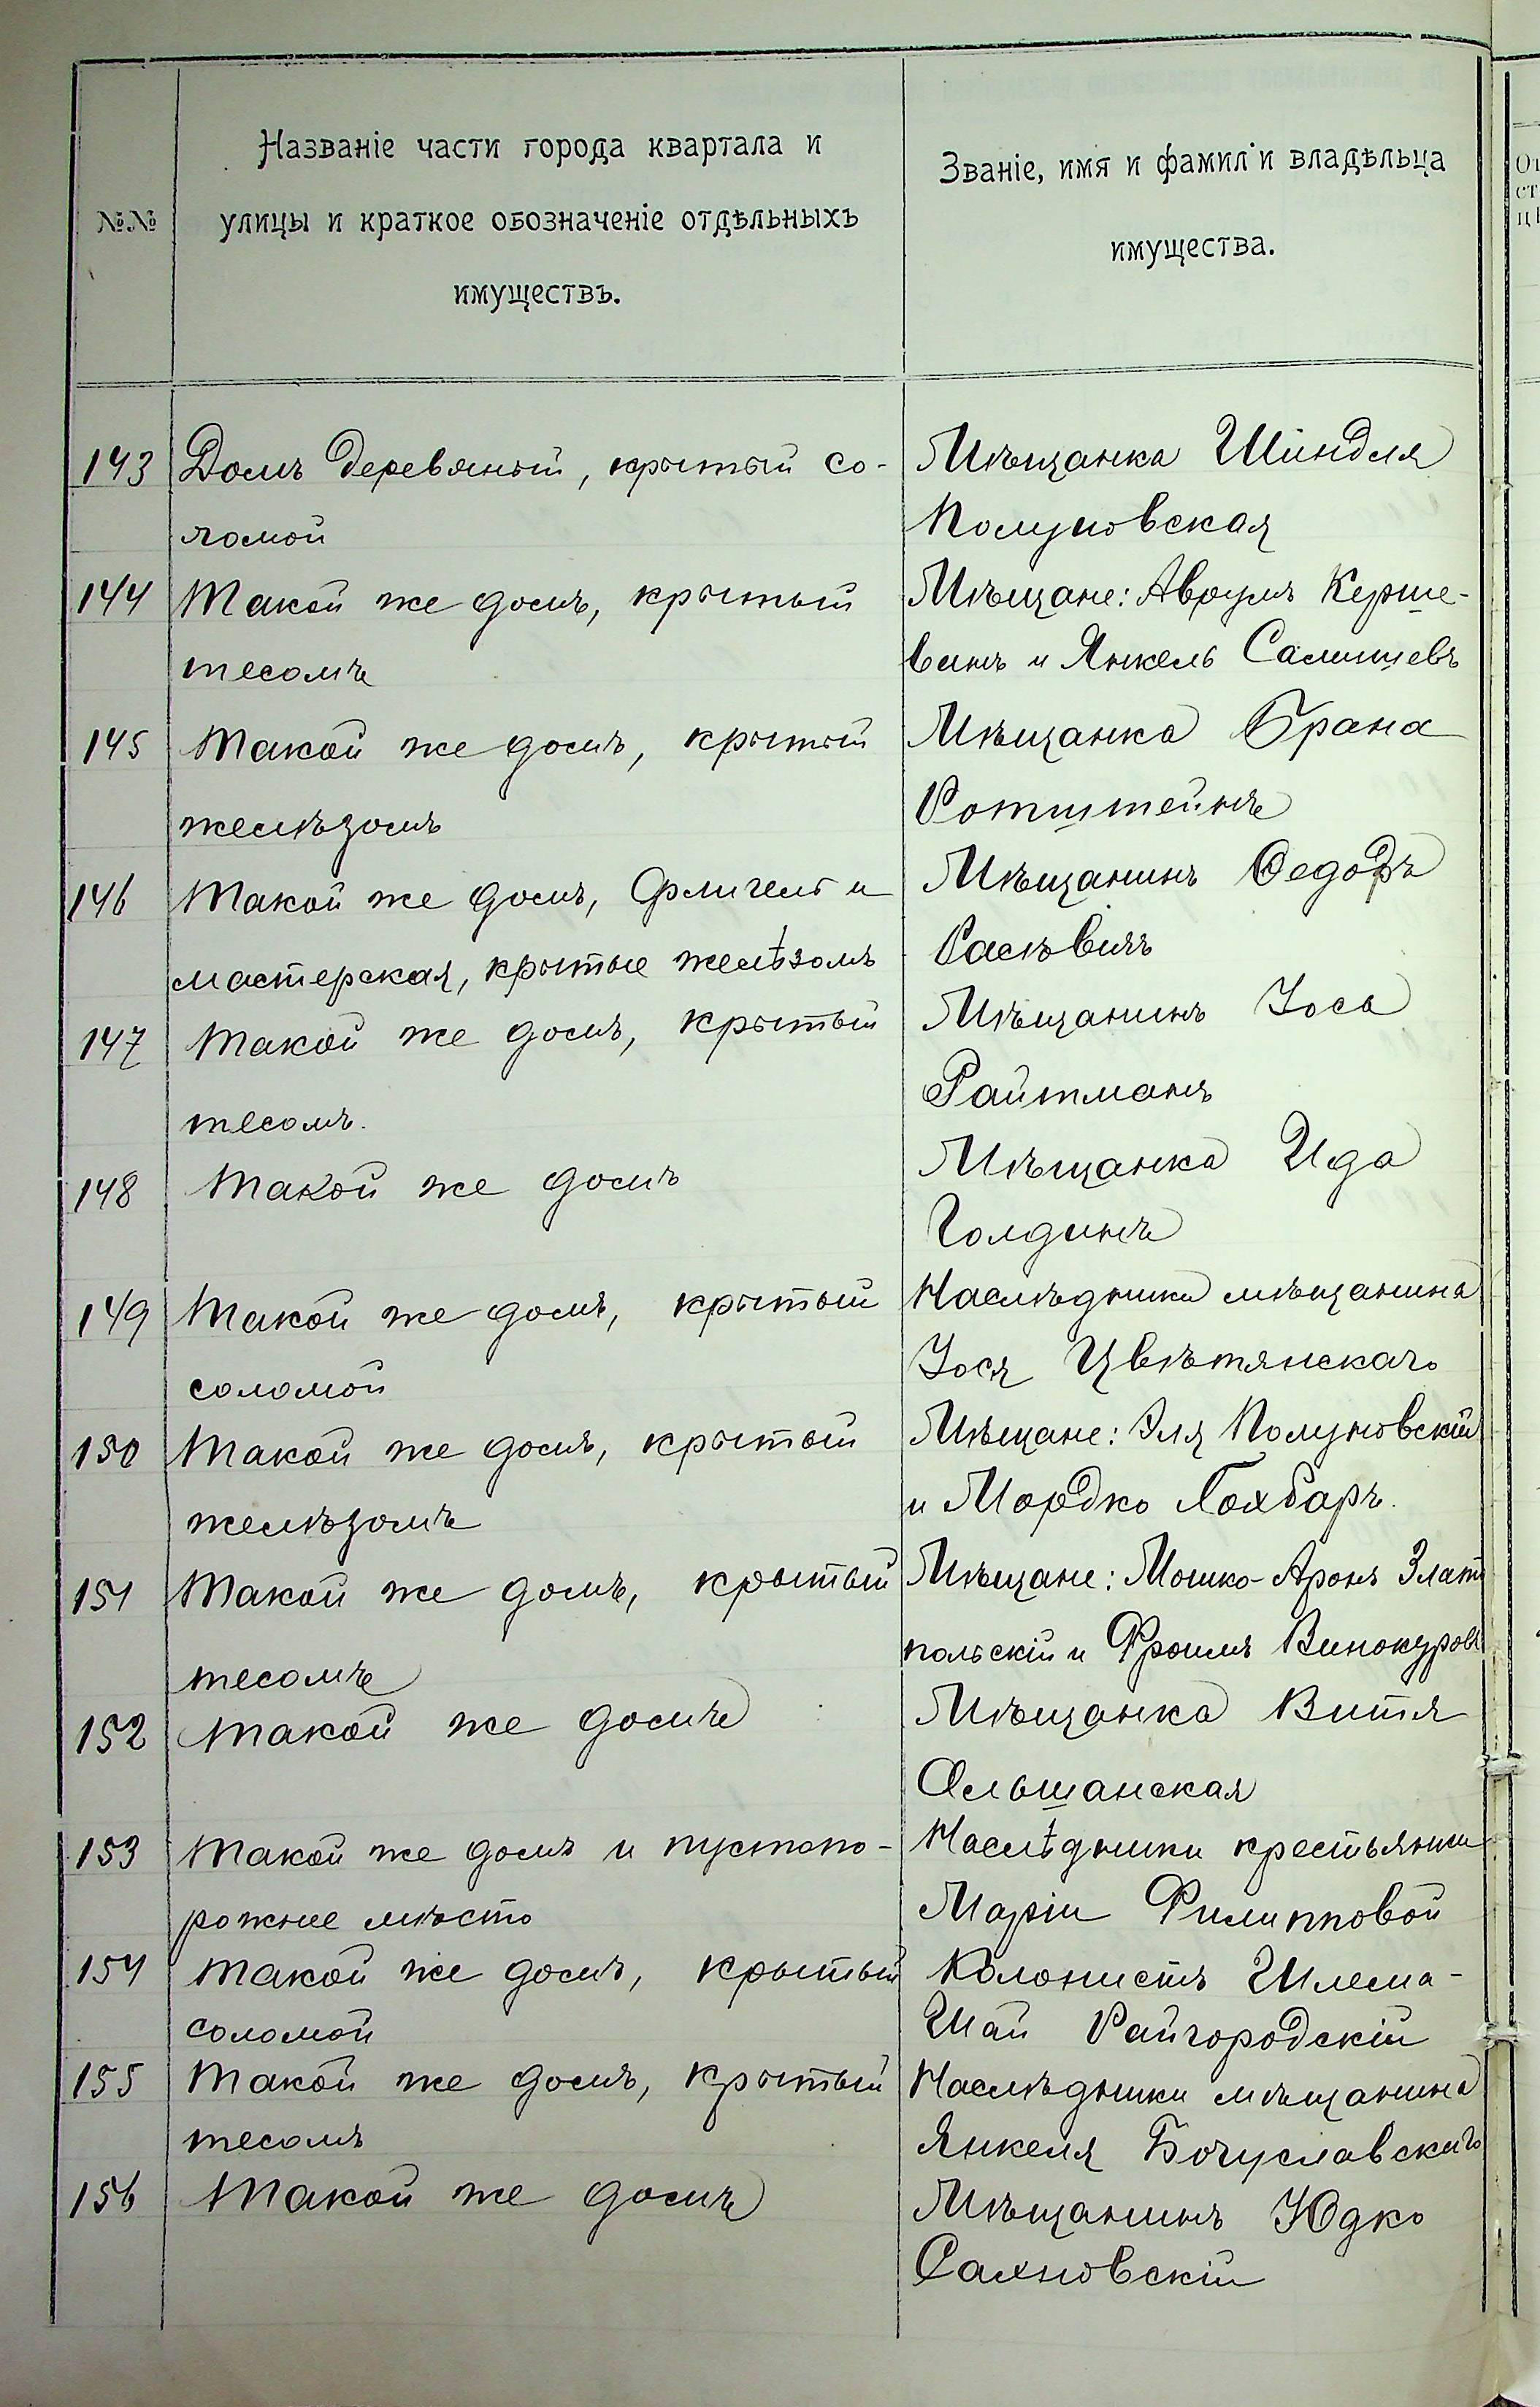 №№
Названіе части города квартала и
улицы и краткое обозначеніе отдѣльныхъ
имуществъ.
Званіе, имя и фамил и владѣльца
имущества.
143 Домъ деревяный, крытый со- Мѣщанка Шиндля
ломой Полуновская
144 Такой же домъ, крытый Мѣщане: Аврумъ Керше-
тесомъ винъ и Янкель Салишевъ
145 Такой же домъ, крытый Мѣщанка Брана
желѣзомъ Ротштейнъ
146 Такой же домъ, флигель и Мѣщанинъ Федоръ
мастерская, крытые желѣзомъ
147 Такой же домъ, крытый Мѣщанинъ Іось
тесомъ. Райтманъ
148 Такой же домъ Мѣщанка Ида
Голдинъ
149 Такой же домъ, крытый Наслѣдники мѣщанина
соломой Іося Цвѣтянскаго
150 Такой же домъ, крытый Мѣщане: Эля Полуновскій
желѣзомъ и Мордко Гохбаръ.
151 Такой же домъ, крытый Мѣщане: Мошко-Аронъ Злато
тесомъ польскій и Фроимъ Винокуровъ
152 Такой же домъ Мѣщанка Витя
Ольшанская
153 Такой же домъ и пустопо- Наслѣдники крестьянки
рожнее мѣсто Маріи Филипповой
154 Такой же домъ, крытый Колонистъ Шлема-
соломой Шай Райгородскій
155 Такой же домъ, крытый Наслѣдники мѣщанина
тесомъ Янкеля Богуславскаго
156 Такой же домъ Мѣщанинъ Юдко
Сахновскій